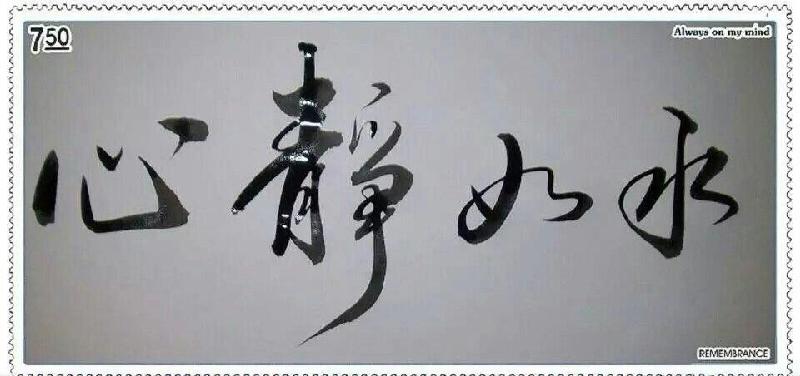 7 50
Always on my mind
心靜如水
REMEMBRANCE